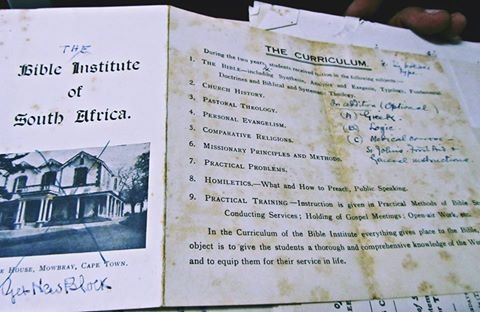 THE
Bible Institute
of
South Africa.
E HOUSE, MOWBRAY, CAPE TOWN.
New Block
THE CURRICULUM.
During the two years students received in the following subjects—
1. THE BIBLE—including Synthesis, Analysis and Exegesis, Typology, Fundamental
Doctrines and Biblical and Systematic Theology.
2. CHURCH HISTORY.
3. PASTORAL THEOLOGY.
4. PERSONAL EVANGELISM.
5. COMPARATIVE RELIGIONS.
6. MISSIONARY PRINCIPLES AND METHODS.
7. PRACTICAL PROBLEMS.
8. HOMILETICS.—What and How to Preach, Public Speaking.
9. PRACTICAL TRAINING—Instruction is given in Practical Methods of Bible Se
Conducting Services; Holding of Gospel Meetings; Open-air Work, etc.
In the Curriculum of the Bible Institute everything gives place to the Bible,
object is to give the students a thorough and comprehensive knowledge of the Wor
and to equip them for their service in life.
type.
In addition (Optional)
(A) Greek.
(B) Logic
(C) Medical
St Johns First Aid &
General instructions.